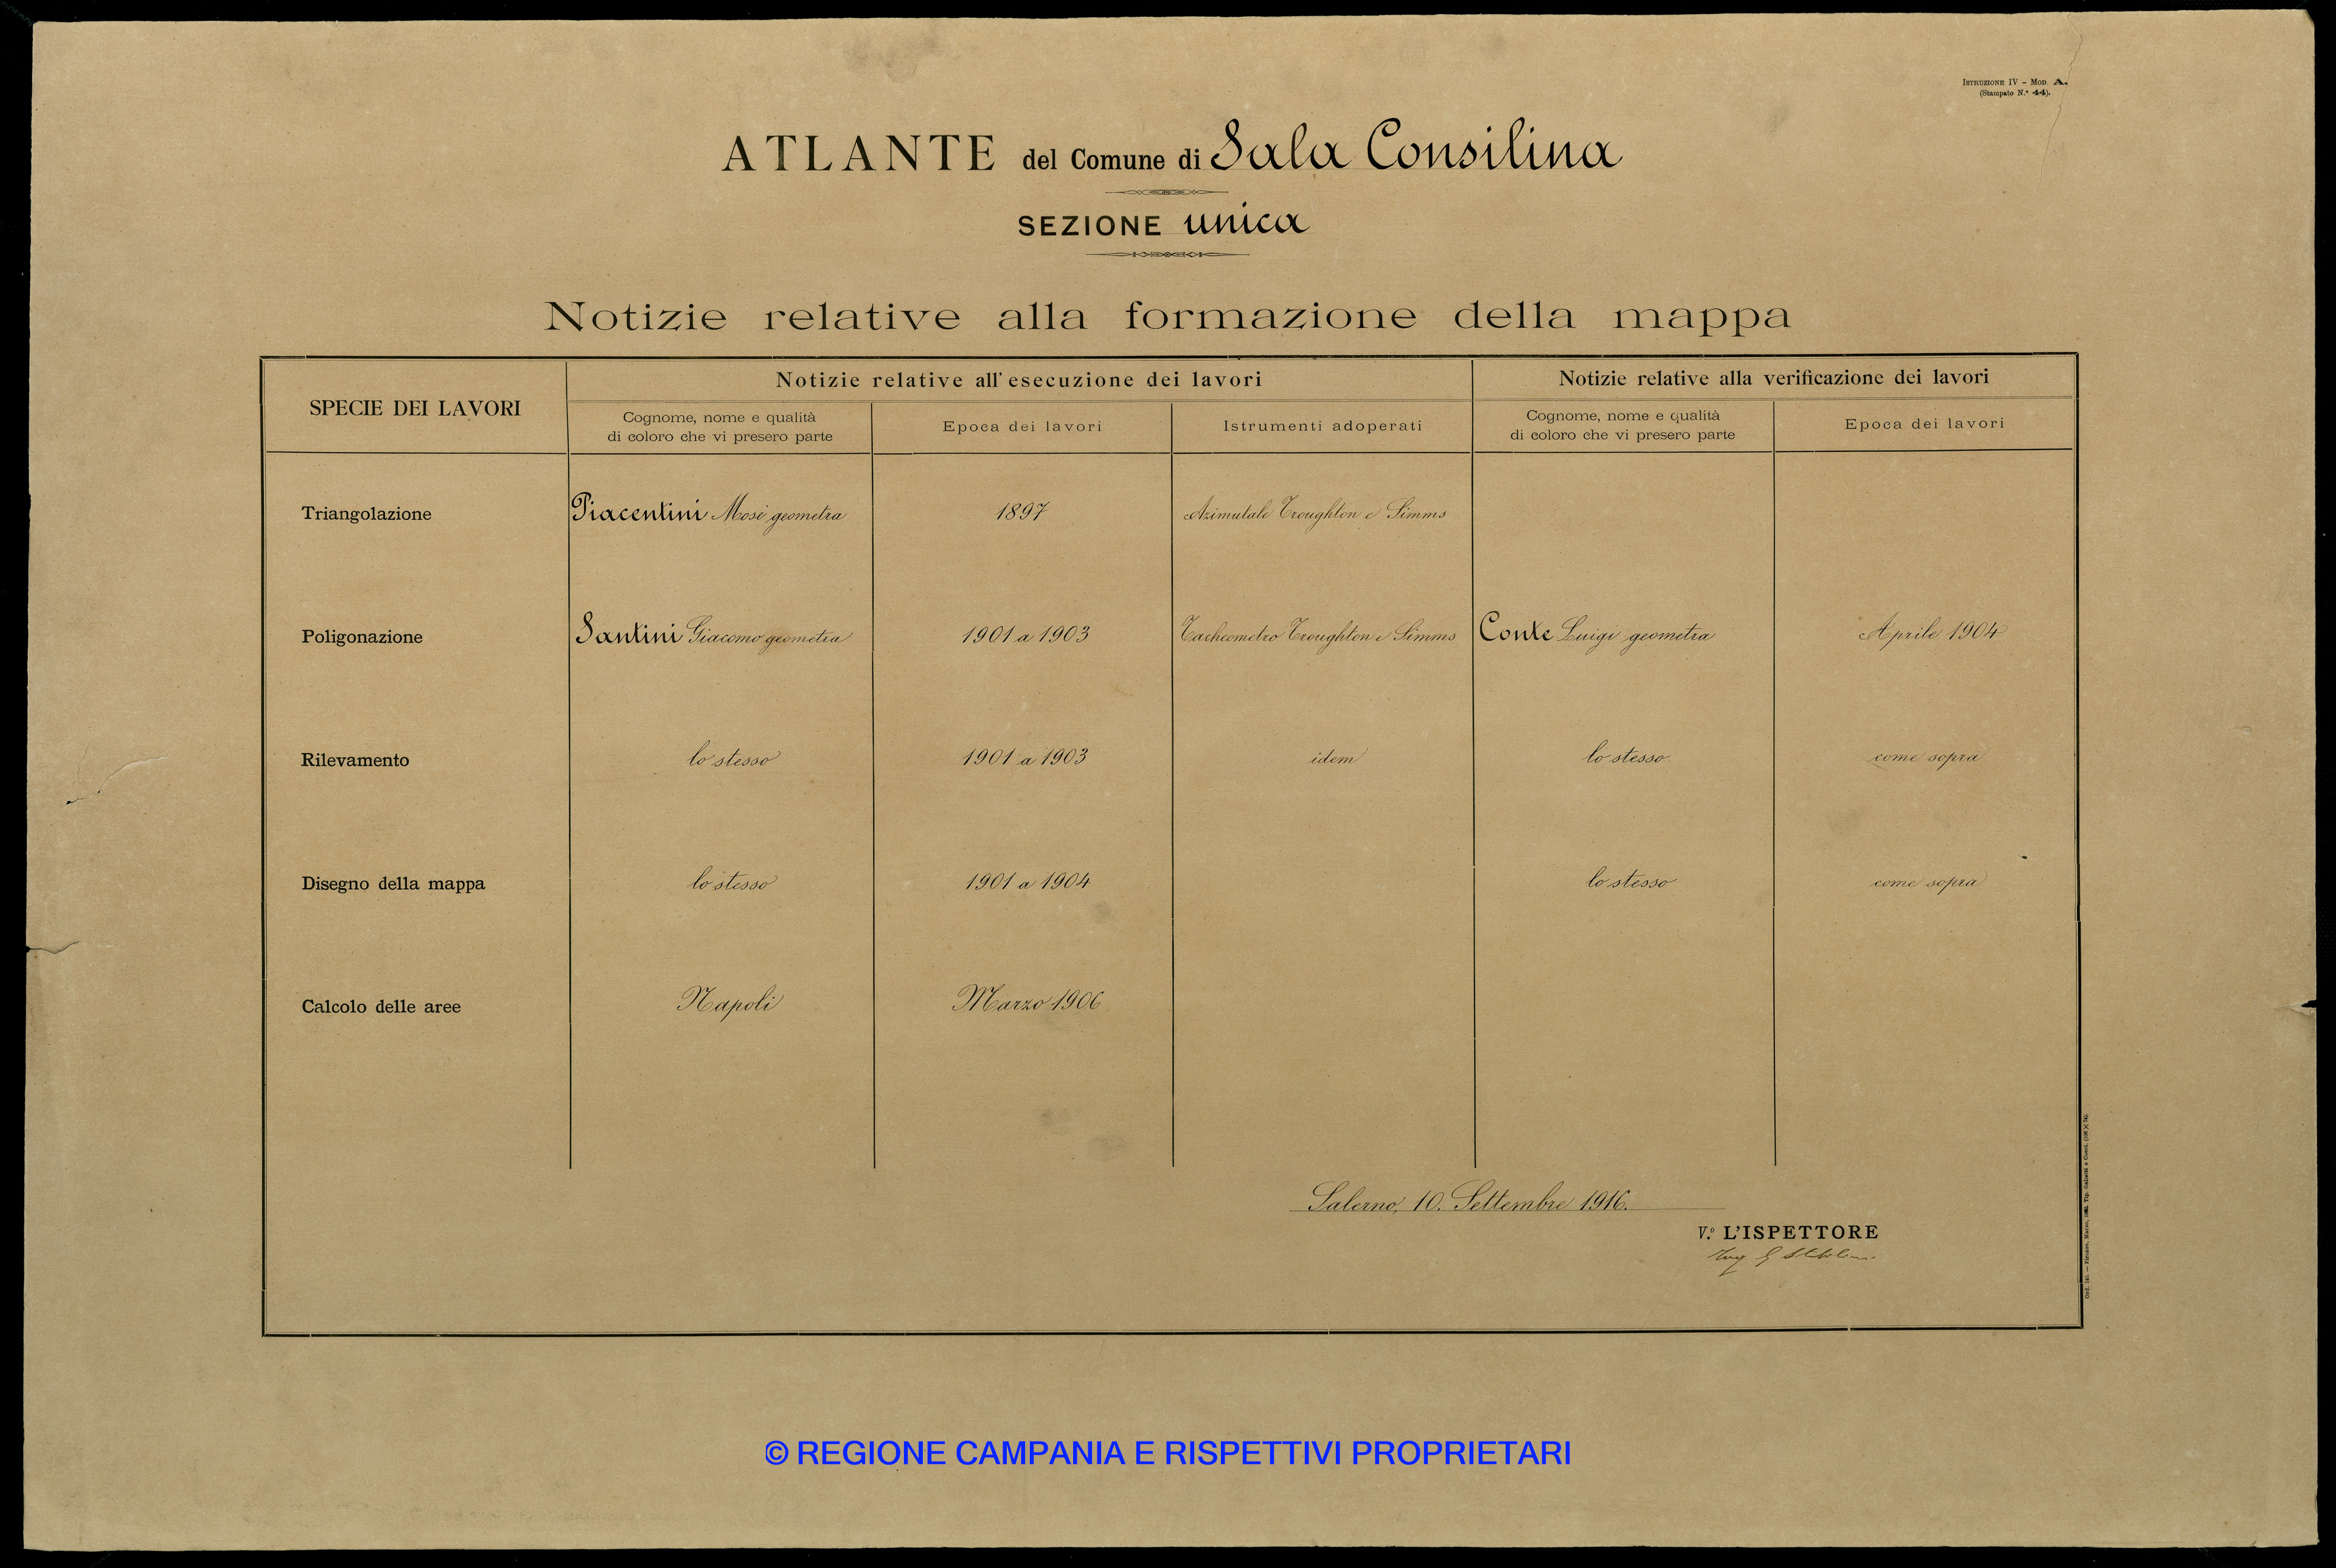 ISTRUZIONE IV – MOD. A.
(Stampato N.° 44).
ATLANTE del Comune di Sala Consilina
SEZIONE unica
Notizie relative alla formazione della mappa
SPECIE DEI LAVORI
Notizie relative all'esecuzione dei lavori
Notizie relative alla verificazione dei lavori
Cognome, nome e qualità
di coloro che vi presero parte
Epoca dei lavori
Istrumenti adoperati
Cognome, nome e qualità
di coloro che vi presero parte
Epoca dei lavori
Triangolazione Piacentini Mosè geometra 1897 Azimutale Troughton e Simms
Poligonazione Santini Giacomo geometra 1901 a 1903 Tacheometro Troughton e Simms Conte Luigi geometra Aprile 1904
Rilevamento lo stesso 1901 a 1903 idem lo stesso come sopra
Disegno della mappa lo stesso 1901 a 1904 lo stesso come sopra
Calcolo delle aree Napoli Marzo 1906
Salerno, 10. Settembre 1916.
V.° L'ISPETTORE
© REGIONE CAMPANIA E RISPETTIVI PROPRIETARI